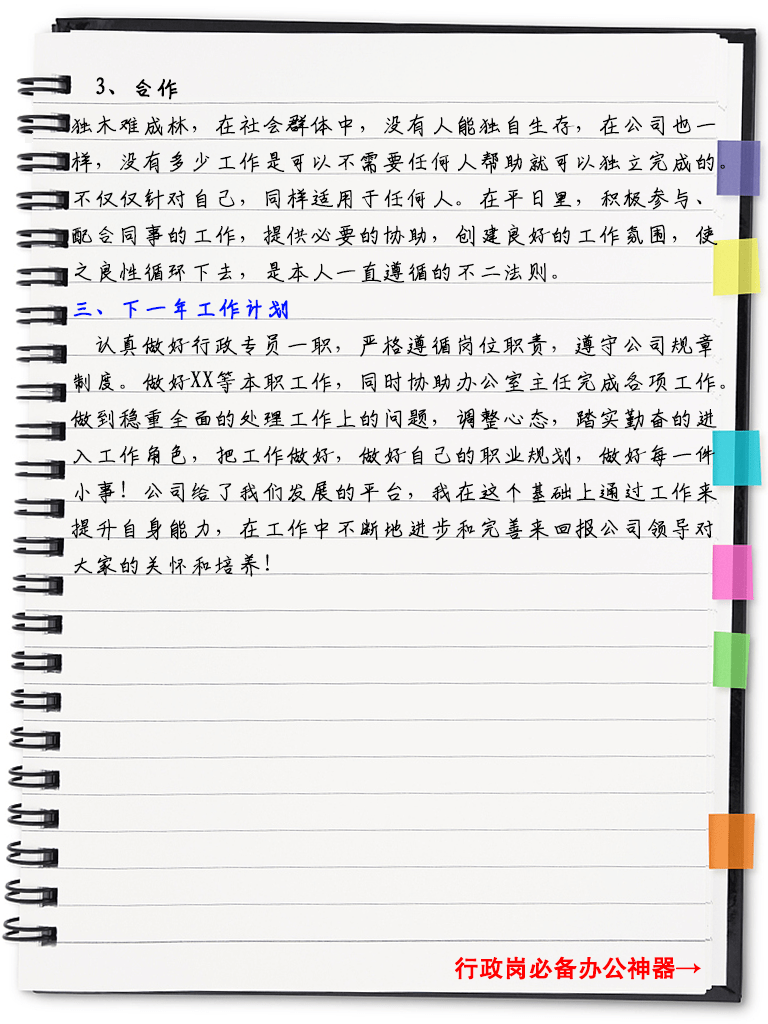 3、合作
独木难成林，在社会群体中，没有人能独自生存，在公司也一
样，没有多少工作是可以不需要任何人帮助就可以独立完成的。
不仅仅针对自己，同样适用于任何人。在平日里，积极参与、
配合同事的工作，提供必要的协助，创建良好的工作氛围，使
之良性循环下去，是本人一直遵循的不二法则。
三、下一年工作计划
认真做好行政专员一职，严格遵循岗位职责，遵守公司规章
制度。做好XX等本职工作，同时协助办公室主任完成各项工作。
做到稳重全面的处理工作上的问题，调整心态，踏实勤奋的进
入工作角色，把工作做好，做好自己的职业规划，做好每一件
小事！公司给了我们发展的平台，我在这个基础上通过工作来
提升自身能力，在工作中不断地进步和完善来回报公司领导对
大家的关怀和培养！
行政岗必备办公神器→